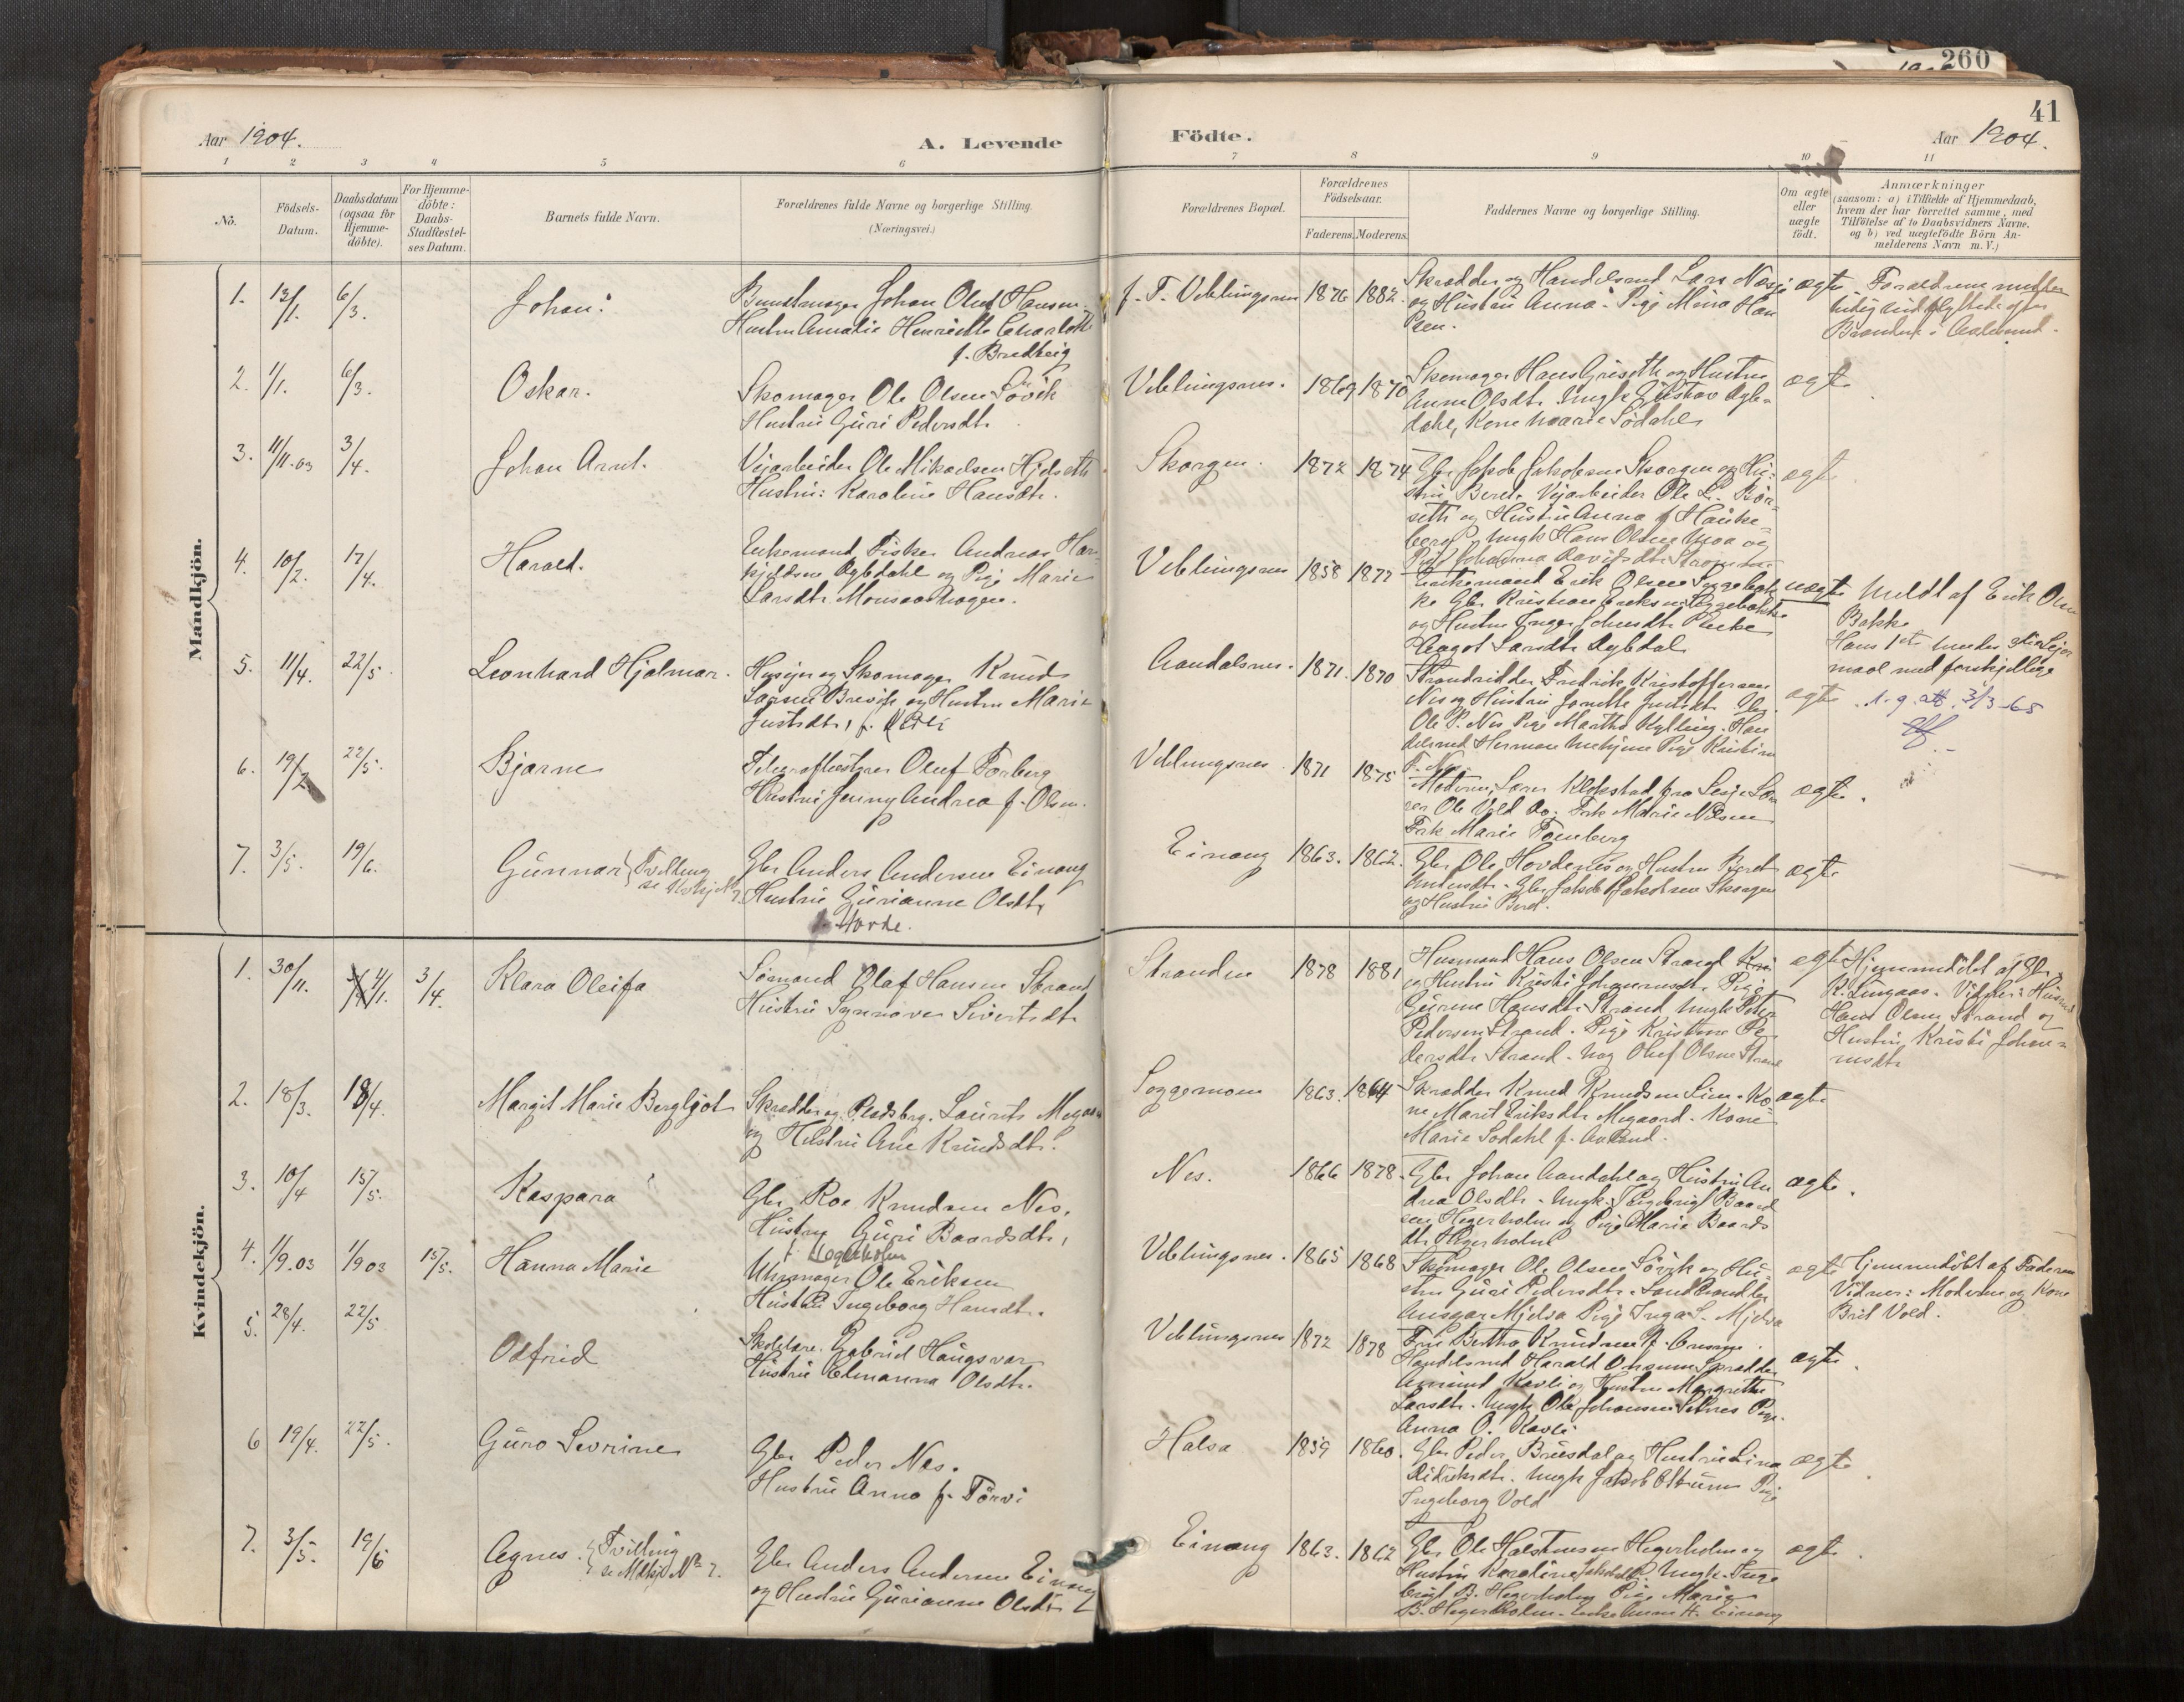 260
41
Aar 1904.
A. Levende
Födte.
Aar 1904.
1 2 3 4 5 6 7 8 9 10 11
Nö.
Födsels-
Datum.
Daabsdatum
(ogsaa for
Hjemme-
döbte).
For Hjemme-
döbte:
Daabs-
Stadfæstel-
ses Datum.
Barnets fulde Navn.
Forældrenes fulde Navne og borgerlige Stilling.
(Næringsvei.)
Forældrenes Bopæl.
Forældrenes
Födselsaar.
Faderens. Moderens.
Faddernes Navne og borgerlige Stilling.
Om ægte
eller
uægte
födt.
Anmærkninger
(saasom: a) i Tilfælde af Hjemmedaab,
hvem der har forrettet samme, med
Tilföielse af to Daabsvidners Navne,
og b) ved uægtefödte Börn An-
melderens Navn m. V.)
Mandkjön.
1. 13/1. 6/3. Johan.
Buntmager Johan Oluf Hansen
Hustru Amalie Henriette Charlotte
f. Bredveig
f. T. Veblungsnes 1876 1882.
Skrædder og Handelsmd Lars Næsje
og Hustru Anna. Pige Mina Han
sen.
ægte
Forældrene midler
tidig indflyttede efter
Branden i Aalesund.
2. 1/1. 6/3. Oskar.
Skomager Ole Olsen Sövik
Hustru Guri Pedersdtr.
Veblungsnes. 1869 1870
Skomager Hans Griseth og Hustru
Anne Olsdtr. Ungk. Gustav Dyb-
dahl, Kone Marie Södahl
ægte
3. 11/11.03 3/4. Johan Arnt.
Veiarbeider Ole Mikaelsen Hjelseth
Hustru: Karoline Hansdtr.
Skorgen. 1872 1874
Gbr. Jakob Jakobsen Skorgen og Hu-
stru Beret. Veiarbeider Ole L. Bör-
seth og Hustru Anna f. Hauke-
berg. Ungk Hans Olsen Moa og
Pige Johanna
ægte
4. 10/2. 17/4. Harald.
Enkemand, Fisker Andreas Har-
kjeldsen Dybdahl og Pige Marie
Larsdtr. Monsaashagen.
Veblungsnes 1858 1877
Enkemand Erik Olsen Soggebak-
ke Gbr. Kristian Eriksen Soggebakke
og Hustru Inger Johnsdtr Enke
Magot Larsdtr Dybdal
uægte
Meldt af Erik Olsen
Bakke
Hans 1ste hendes 2den Leier
maal med forskjellige
5. 11/4. 22/5. Leonhard Hjalmar.
Husejer og Skomager Knud
Larsen Brevik og Hustru Marie
Justsdtr, f.
Aandalsnes. 1871. 1870
Strandsidder Fredrik Kristoffersen
Nes og Hustru Jonette Justsdtr. Gbr.
Ole P. Nes Pige Martha Kylling. Han
delsmd Herman Mehjem Pige Kristine
P. Nes.
ægte
1. g. att. 3/3-65
6. 19/2 22/5. Bjarne
Telegrafbestyrer Oluf Torberg
Hustru Jenny Andrea f. Olsen.
Veblungsnes 1871 1875
Moderen, Lærer Klokstad fra Lesje Læ
rer Ole Vold do, Frk Marie Nilsen
Frk Marie Tomberg
ægte.
7. 3/5. 19/6. Gunnar } Tvilling
se Kvkj No 7.
Gbr. Anders Andersen Einang
Hustru Gurianne Olsdtr.
f. Hovde.
Einang 1863. 1862.
Gbr. Ole Hovdenes og Hustru Beret
Andersdtr. Gbr. Jakob Jakobsen Skorgen
og Hustru Beret.
ægte
Kvindekjön.
1. 30/11. 4/1. 3/4. Klara Oleifa
Sömand Olaf Hansen Strand
Hustru Synnöve Sivertsdtr
Stranden 1878 1881
Husmand Hans Olsen Strand
og Hustru Kristi Johannesdtr Pige
Gurine Hansdtr Strand Ungk Peter
Pedersen Strand. Pige Kristine Pe
dersdtr Strand. Ung Oluf Olsen Strand
ægte
Hjemmedöbt af Gbr.
K. Lingaas. Vidner: Husmd
Hans Olsen Strand og
Hustru Kristi Johan-
nesdtr
2. 18/3. 18/4. Margit Marie Bergljot
Skrædder og Pladsbrg. Laurits Megaard
og Hustru Ane Knudsdtr.
Soggemoen 1863. 1864
Skrædder Knud Knudsen Lien. Ko-
ne Marit Eriksdtr Megaard. Kone
Marie Södahl f. Aalund.
ægte
3. 10/4 15/5. Kaspara
Gbr. Roe Knudsen Nes.
Hustru Guri Baardsdtr,
f. Hegerholm
Nes. 1866 1878.
Gbr. Johan Aandahl og Hustru An
drea Olsdtr. Ungk. Ingebrigt Baard
sen Hegerholm og Pige Marie Baards
dtr Hegerholm
ægte.
4. 1/9.03 1/9 03 15/5. Hanna Marie
Uhrmager Ole Eriksen
Hustru Ingeborg Hansdtr.
Veblungsnes. 1865 1868
Skomager Ole Olsen Sövik og Hu-
stru Guri Pedersdtr. Landhandler
Ansgar Mjelva Pige Inga L. Mjelva
ægte
Hjemmedöbt af Faderen
Vidner: Moderen og Kone
Brit Vold.
5. 28/4. 22/5 Odfrid
Skolelære. Gabriel Haugsvær
Hustru Elmanna Olsdtr.
Veblungsnes 1872 1878
Fru Bertha Knudsen f. Onsum.
Handelsmd Harald Onsum Skrædder
Amund Kavli og Hustru Margrethe
Larsdtr. Ungk Ole Johansen Setnes Pige
Anna O. Kavli
ægte.
6 19/4. 22/5. Guro Sevrine
Gbr. Peder Nes.
Hustru Anna f. Törvi
Halsa 1859 1860.
Gbr Peder Brusdal og Hustru Lina
Didriksdtr. Ungk Jakob Pige
Ingeborg Vold
ægte
7. 3/5. 19/6 Agnes. { Tvilling
se Mkkj No 7.
Gbr Anders Andersen Einang
og Hustru Gurianne Olsdtr
Einang 1863. 1862
Gbr Ole Halstensen Hegerholm og
Hustru Karoline Jakobsdtr. Ungk. Inge
brigt B. Hegerholm Pige Marie
B. Hegerholm. Enke Anne H. Einang
ægte.